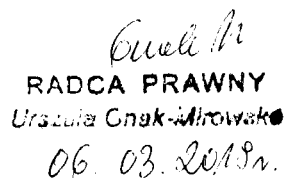 RADCA PRAWNY
Urszula Gnak-Mirowska
06. 03. 2019r.